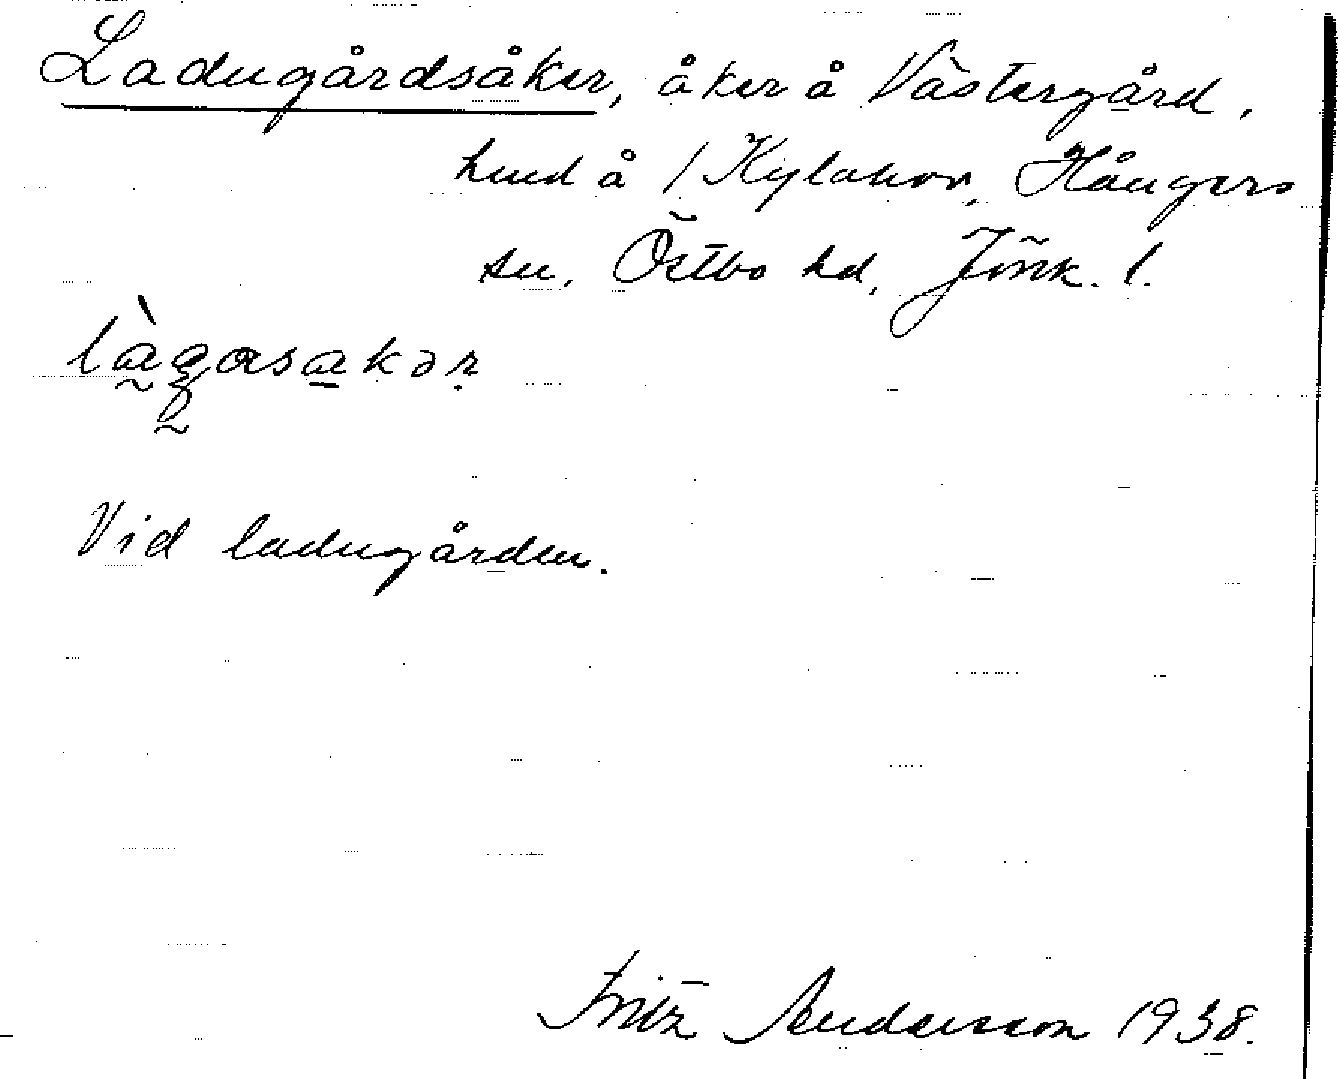 Ladugårdsåker, åker å Västergård,
hmd å / Kylahov, Hångers
sn, Östbo hd, Jönk. l.
làgasakər
Vid ladugården.
Fritz Andersson 1938.